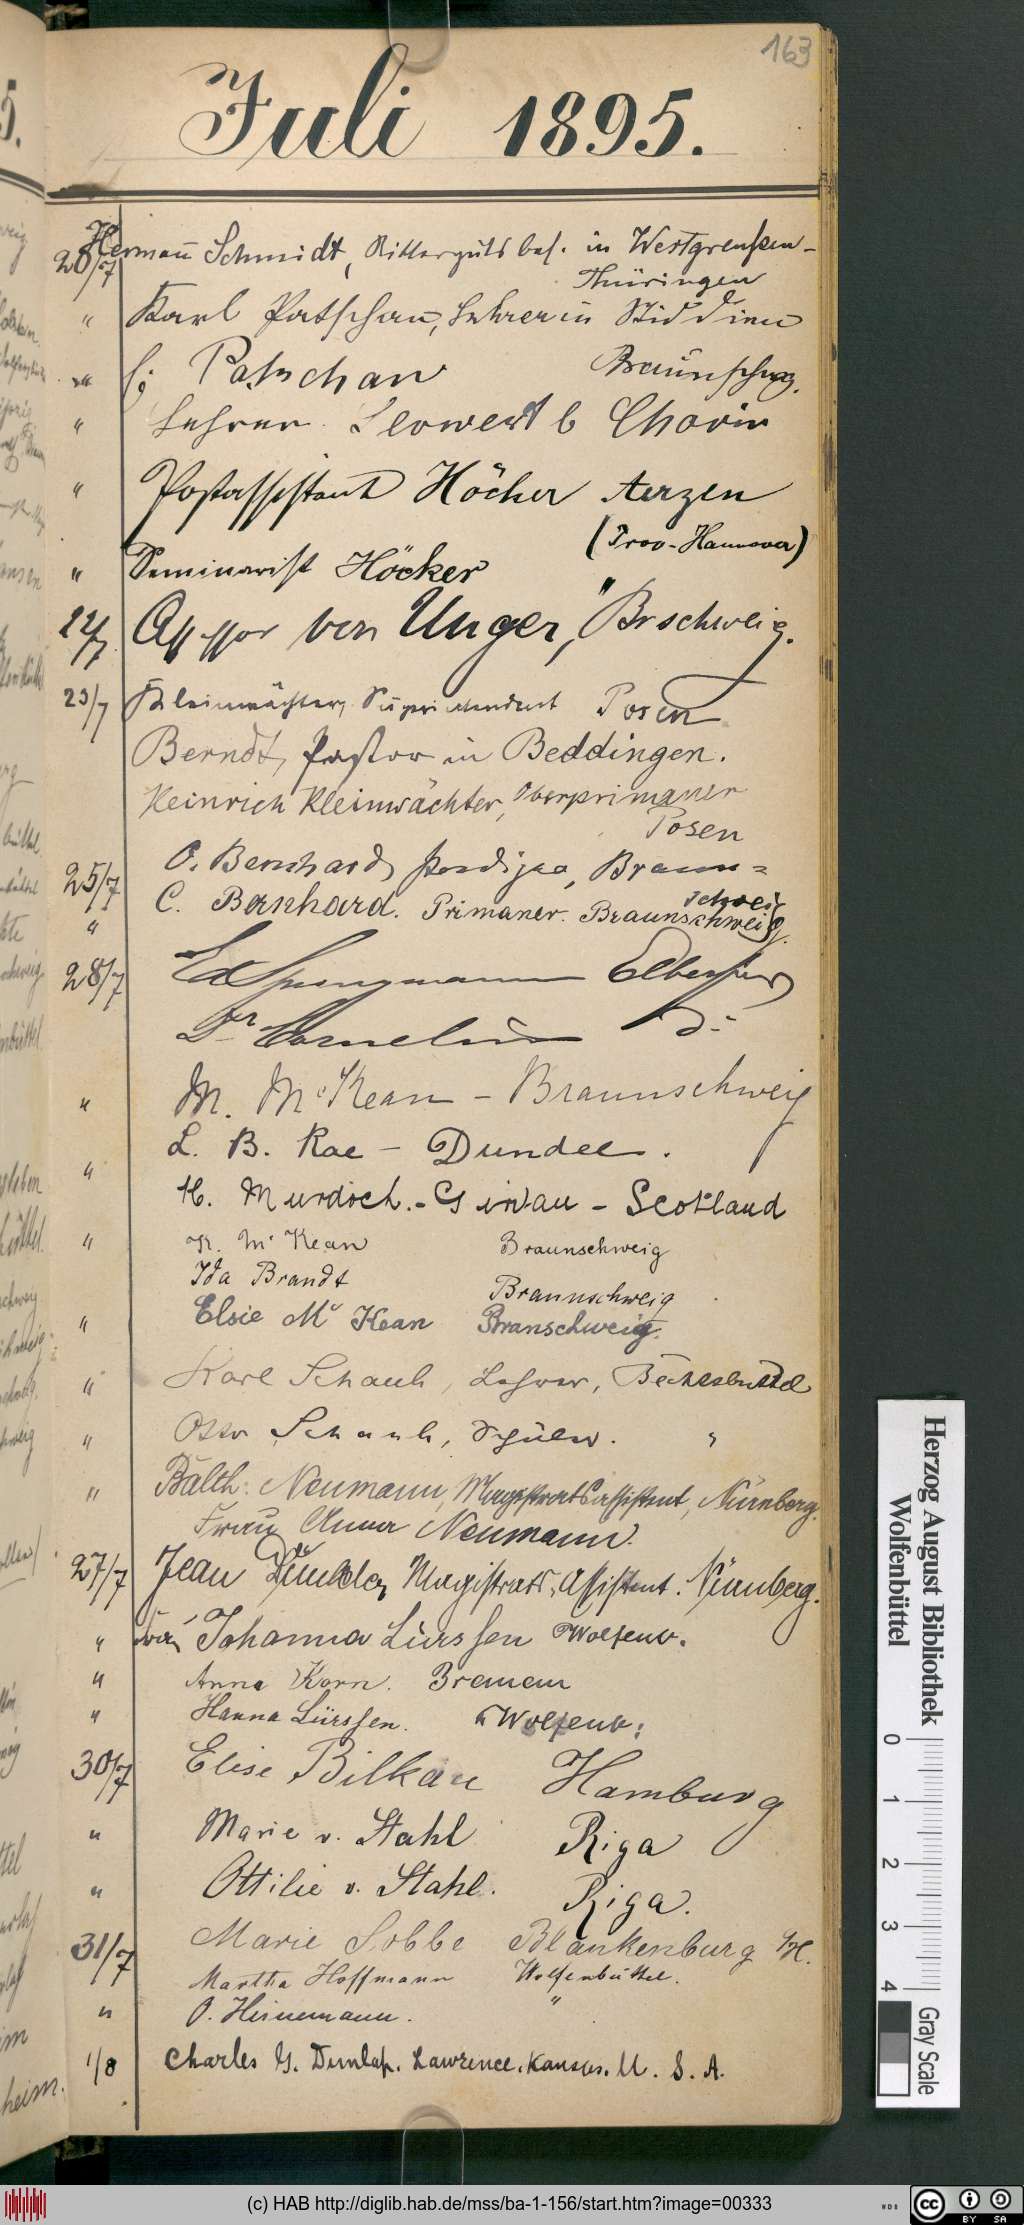 163
Juli 1895.
20/7 Hermann Schmidt, Rittergutsbes. in Westgreußen-
Thüringen
" Karl Patschau, Lehrer in Stiddien
" E. Patschau Braunschwg.
" Lehrer b Chorin
" Postassistent Höcker Aerzen
(Prov. Hannover)
" Seminarist Höcker "
22/7 Assessor von Unger, Brschweig.
23/7 Kleinwächter, Superintendent Posen
Berndt, Pastor in Beddingen.
Heinrich Kleinwächter, Oberprimaner
Posen
25/7 O. Bernhard, Braun-
schweig
" C. Bernhard. Primaner. Braunschweig.
28/7 Ed Springmann Elberfeld
Dr Cornelius do
" M. McKean - Braunschweig
L. B. Rae - Dundee.
" H. Murdoch. - Girvan - Scotland
" K. Mc Kean Braunschweig
Ida Brandt Braunschweig
" Elsie Mc Kean Branschweig.
" Karl Schaub, Lehrer, Bechtsbüttel
" Otto Schaub, Schüler. "
" Balth. Neumann, Magistratsassistent, Nürnberg.
Frau Anna Neumann.
27/7 Jean Magistrats. Assistent. Nürnberg.
" Johanna Lürssen Wolfenb.
" Anna Korn. Bremen
" Hanna Lürssen. Wolfenb.
30/7 Elise Bilkau Hamburg
" Marie v. Stahl Riga
" Ottilie v. Stahl. Riga.
31/7 Marie Sobbe Blankenburg /H.
Martha Hoffmann Wolfenbüttel.
" O. Heinemann. "
1/8 Charles G. Dunlap. Lawrence. Kansas. U. S. A.
Herzog August Bibliothek
Wolfenbüttel
0 1 2 3 4
Gray Scale
(c) HAB http://diglib.hab.de/mss/ba-1-156/start.htm?image=00333
WDB
cc BY SA